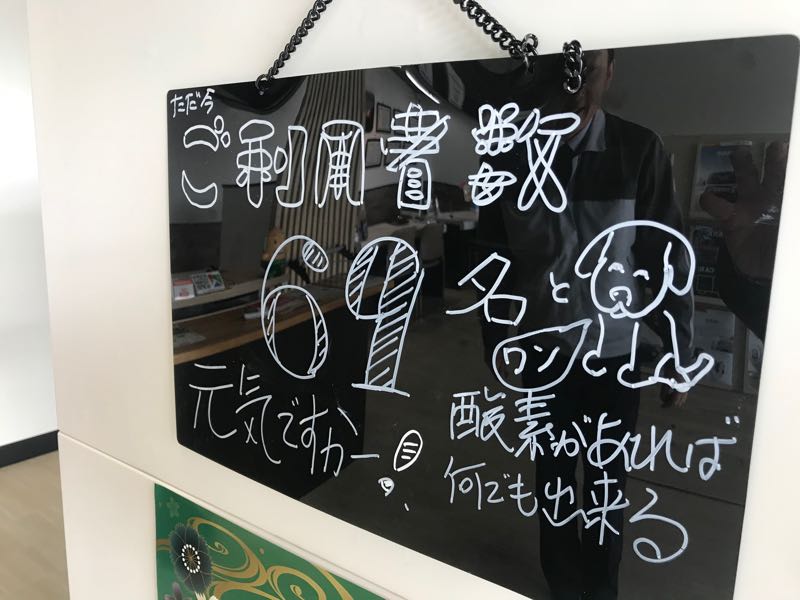 ただ今
ご利用者数
69名と
ワン
元気ですかー!
酸素があれば
何でも出来る